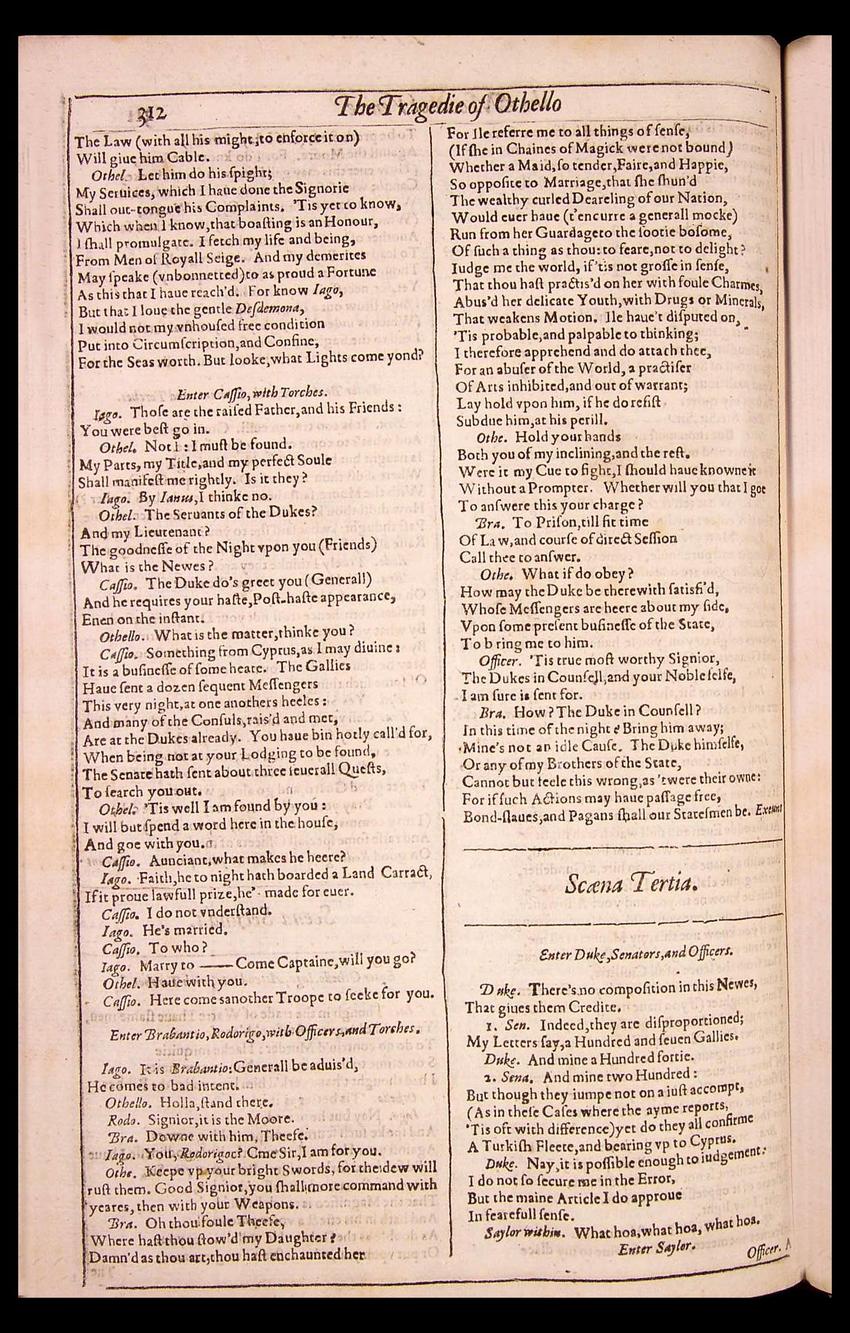 312
The Tragedie of Othello
The Law (with all his might, to enforce it on)
Will giue him Cable.
Othel. Let him do his ſpight;
My Seruices, which I haue done the Signorie
Shall out-tongue his Complaints. 'Tis yet to know,
Which when I know, that boaſting is an Honour,
I ſhall promulgate. I fetch my life and being,
From Men of Royall Seige. And my demerites
May ſpeake (vnbonnetted) to as proud a Fortune
As this that I haue reach'd. For know Iago,
But that I loue the gentle Deſdemona,
I would not my vnhouſed free condition
Put into Circumſcription, and Confine,
For the Seas worth. But looke, what Lights come yond?
Enter Caſſio, with Torches.
Iago. Thoſe are the raiſed Father, and his Friends:
You were beſt go in.
Othel. Not I: I muſt be found.
My Parts, my Title, and my perfect Soule
Shall manifeſt me rightly. Is it they?
Iago. By Ianus, I thinke no.
Othel. The Seruants of the Dukes?
And my Lieutenant?
The goodneſſe of the Night vpon you (Friends)
What is the Newes?
Caſſio. The Duke do's greet you (Generall)
And he requires your haſte, Poſt-haſte appearance,
Enen on the inſtant.
Othello. What is the matter, thinke you?
Caſſio. Something from Cyprus, as I may diuine:
It is a buſineſſe of ſome heate. The Gallies
Haue ſent a dozen ſequent Meſſengers
This very night, at one anothers heeles:
And many of the Conſuls, rais'd and met,
Are at the Dukes already. You haue bin hotly call'd for,
When being not at your Lodging to be found,
The Senate hath ſent about three ſeuerall Queſts,
To ſearch you out.
Othel. 'Tis well I am found by you:
I will but ſpend a word here in the houſe,
And goe with you.
Caſſio. Aunciant, what makes he heere?
Iago. Faith, he to night hath boarded a Land Carract,
If it proue lawfull prize, he' made for euer.
Caſſio. I do not vnderſtand.
Iago. He's married.
Caſſio. To who?
Iago. Marry to —— Come Captaine, will you go?
Othel. Haue with you.
Caſſio. Here comes another Troope to ſeeke for you.
Enter Brabantio, Rodorigo, with Officers, and Torches.
Iago. It is Brabantio: Generall be aduis'd,
He comes to bad intent.
Othello. Holla, ſtand there.
Rodo. Signior, it is the Moore.
Bra. Downe with him, Theefe.
Iago. You, Rodorigoc? Cme Sir, I am for you.
Othe. Keepe vp your bright Swords, for the dew will
ruſt them. Good Signior, you ſhall more command with
yeares, then with your Weapons.
Bra. Oh thou foule Theefe,
Where haſt thou ſtow'd my Daughter?
Damn'd as thou art, thou haſt enchaunted her
For Ile referre me to all things of ſenſe,
(If ſhe in Chaines of Magick were not bound)
Whether a Maid, ſo tender, Faire, and Happie,
So oppoſite to Marriage, that ſhe ſhun'd
The wealthy curled Deareling of our Nation,
Would euer haue (t'encurre a generall mocke)
Run from her Guardage to the ſootie boſome,
Of ſuch a thing as thou: to feare, not to delight?
Iudge me the world, if 'tis not groſſe in ſenſe,
That thou haſt practis'd on her with foule Charmes,
Abus'd her delicate Youth, with Drugs or Minerals,
That weakens Motion. Ile haue't diſputed on,
'Tis probable, and palpable to thinking;
I therefore apprehend and do attach thee,
For an abuſer of the World, a practiſer
Of Arts inhibited, and out of warrant;
Lay hold vpon him, if he do reſiſt
Subdue him, at his perill.
Othe. Hold your hands
Both you of my inclining, and the reſt.
Were it my Cue to fight, I ſhould haue knowne it
Without a Prompter. Whether will you that I goe
To anſwere this your charge?
Bra. To Priſon, till fit time
Of Law, and courſe of direct Seſſion
Call thee to anſwer.
Othe. What if do obey?
How may the Duke be therewith ſatisfi'd,
Whoſe Meſſengers are heere about my ſide,
Vpon ſome preſent buſineſſe of the State,
To bring me to him.
Officer. 'Tis true moſt worthy Signior,
The Dukes in Counſell, and your Noble ſelfe,
I am ſure is ſent for.
Bra. How? The Duke in Counſell?
In this time of the night? Bring him away;
Mine's not an idle Cauſe. The Duke himſelfe,
Or any of my Brothers of the State,
Cannot but feele this wrong, as 'twere their owne:
For if ſuch Actions may haue paſſage free,
Bond-ſlaues, and Pagans ſhall our Stateſmen be. Exeunt
Scæna Tertia.
Enter Duke, Senators, and Officers.
Duke. There's no compoſition in this Newes,
That giues them Credite.
1. Sen. Indeed, they are diſproportioned;
My Letters ſay, a Hundred and ſeuen Gallies.
Duke. And mine a Hundred fortie.
2. Sena. And mine two Hundred:
But though they iumpe not on a iuſt accompt,
(As in theſe Caſes where the ayme reports,
'Tis oft with difference) yet do they all confirme
A Turkiſh Fleete, and bearing vp to Cyprus.
Duke. Nay, it is poſſible enough to iudgement:
I do not ſo ſecure me in the Error,
But the maine Article I do approue
In fearefull ſenſe.
Saylor within. What hoa, what hoa, what hoa.
Enter Saylor.
Officer.